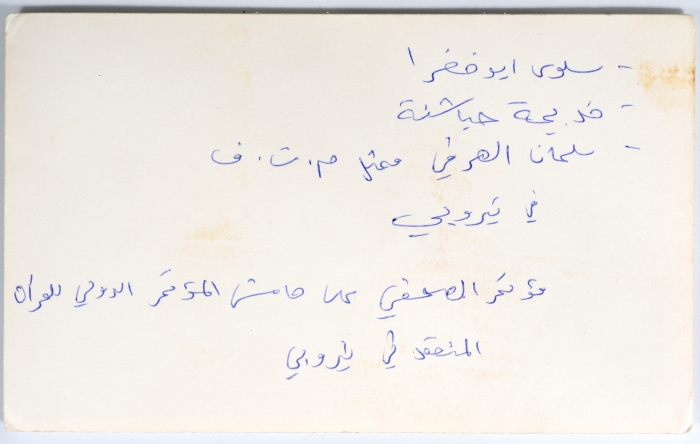 - سلوى ابو خضرا
- خديجة حباشنة
- سلمان الهرفي ممثل م.ت.ف
في نيروبي
مؤتمر الصحفي على هامش المؤتمر الدولي للمرأة
المنعقد في نيروبي